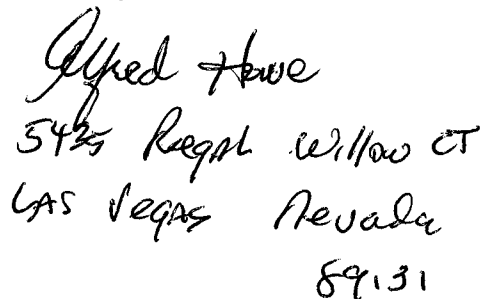 Alfred Howe
5425 Regal Willow CT
LAS Vegas Nevada
89131